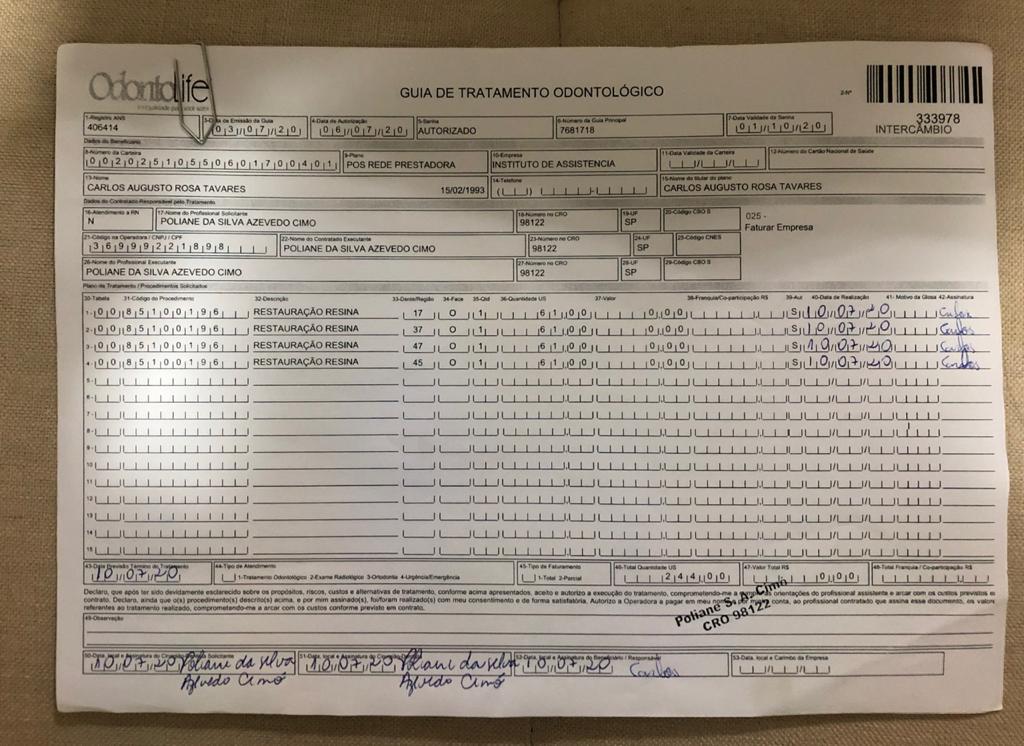 OdontoLife
GUIA DE TRATAMENTO ODONTOLÓGICO
2-Nº
333978
INTERCÂMBIO
1-Registro ANS
406414
3-Data de Emissão da Guia
03/07/20
4-Data de Autorização
06/07/20
5-Senha
AUTORIZADO
6-Número da Guia Principal
7681718
7-Data Validade da Senha
01/10/20
Dados do Beneficiário
8-Número da Carteira
00202510550601700401
9-Plano
POS REDE PRESTADORA
10-Empresa
INSTITUTO DE ASSISTENCIA
11-Data Validade da Carteira
12-Número do Cartão Nacional de Saúde
13-Nome
CARLOS AUGUSTO ROSA TAVARES 15/02/1993
14-Telefone
15-Nome do titular do plano
CARLOS AUGUSTO ROSA TAVARES
Dados do Contratado Responsável pelo Tratamento
16-Atendimento a RN
N
17-Nome do Profissional Solicitante
POLIANE DA SILVA AZEVEDO CIMO
18-Número no CRO
98122
19-UF
SP
20-Código CBO S
025 -
Faturar Empresa
21-Código na Operadora / CNPJ / CPF
36999221898
22-Nome do Contratado Executante
POLIANE DA SILVA AZEVEDO CIMO
23-Número no CRO
98122
24-UF
SP
25-Código CNES
26-Nome do Profissional Executante
POLIANE DA SILVA AZEVEDO CIMO
27-Número no CRO
98122
28-UF
SP
29-Código CBO S
Plano de Tratamento / Procedimentos Solicitados
30-Tabela 31-Código do Procedimento 32-Descrição 33-Dente/Região 34-Face 35-Qtd 36-Quantidade US 37-Valor 38-Franquia/Co-participação R$ 39-Aut 40-Data de Realização 41- Motivo da Glosa 42-Assinatura
1- 00 85100196 RESTAURAÇÃO RESINA 17 O 1 61,00 0,00 S 10/07/20 Carlos
2- 00 85100196 RESTAURAÇÃO RESINA 37 O 1 61,00 0,00 S 10/07/20 Carlos
3- 00 85100196 RESTAURAÇÃO RESINA 47 O 1 61,00 0,00 S 10/07/20 Carlos
4- 00 85100196 RESTAURAÇÃO RESINA 45 O 1 61,00 0,00 S 10/07/20 Carlos
5-
6-
7-
8-
9-
10
11
12
13
14
15
43-Data Previsão Término do Tratamento
10/07/20
44-Tipo de Atendimento
1-Tratamento Odontológico 2-Exame Radiológico 3-Ortodontia 4-Urgência/Emergência
45-Tipo de Faturamento
1-Total 2-Parcial
46-Total Quantidade US
244,00
47-Valor Total R$
0,00
48-Total Franquia / Co-participação R$
Declaro, que após ter sido devidamente esclarecido sobre os propósitos, riscos, custos e alternativas de tratamento, conforme acima apresentados, aceito e autorizo a execução do tratamento, comprometendo-me a orientações do profissional assistente e arcar com os custos previstos
contrato. Declaro, ainda que o(s) procedimento(s) descrito(s) acima, e por mim assinado(s), foi/foram realizado(s) com meu consentimento e de forma satisfatória. Autorizo a Operadora a pagar em meu conta, ao profissional contratado que assina esse documento, os valores
referentes ao tratamento realizado, comprometendo-me a arcar com os custos conforme previsto em contrato.
Poliane S. A. Cimó
CRO 98122
49-Observação
50-Data, local e Assinatura do
10/07/20 Poliani da silva
Azevedo Cimó
51-Data, local e Assinatura do
10/07/20 Poliani da silva
Azevedo Cimó
52-Data, local e Assinatura do Beneficiário / Responsável
10/07/20 Carlos
53-Data, local e Carimbo da Empresa